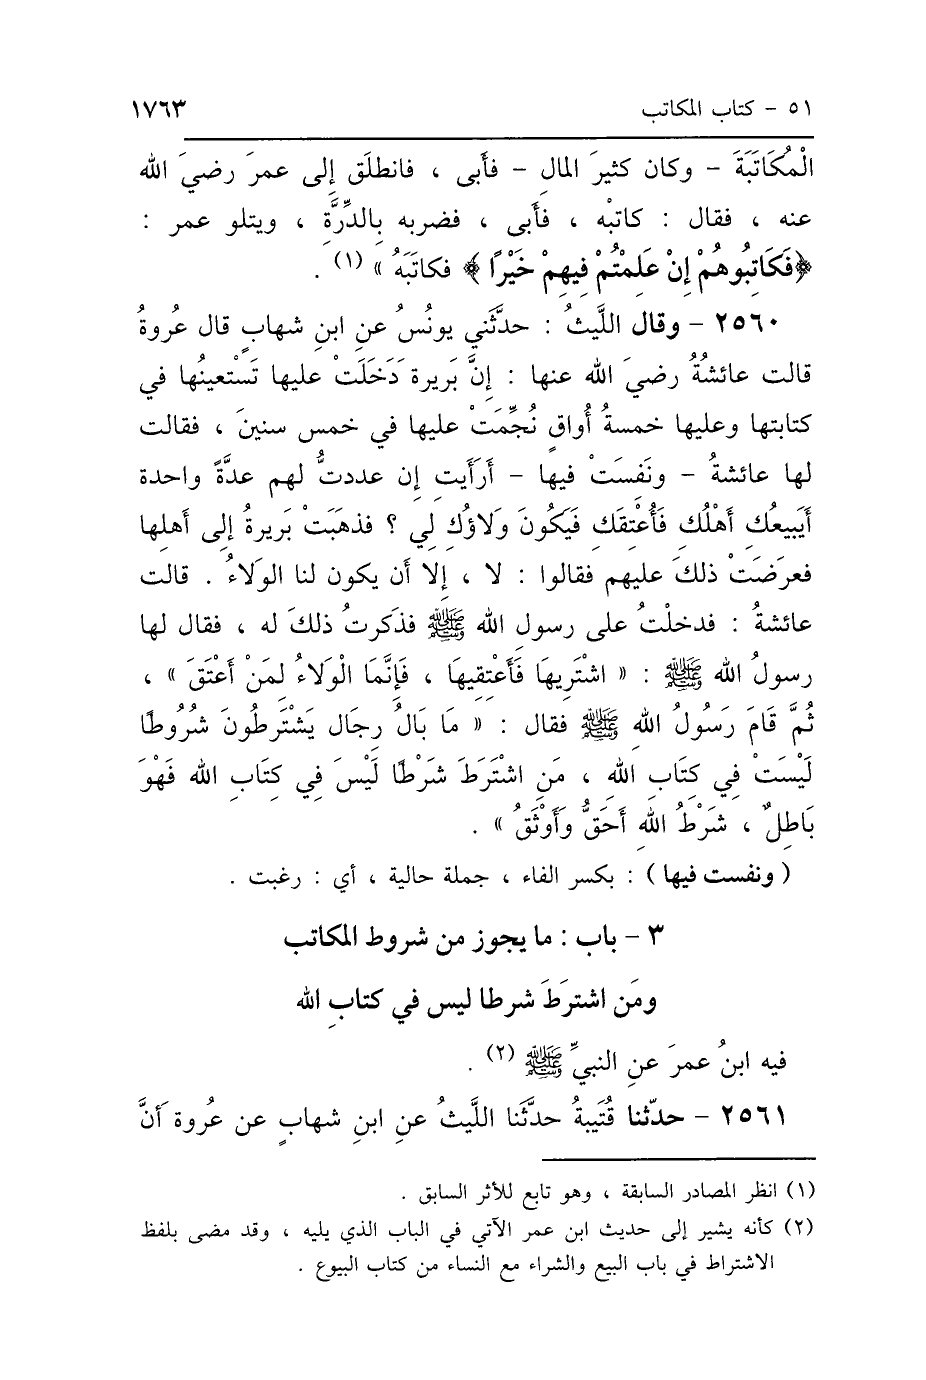 ٥١ - كتاب المكاتب ١٧٦٣
الْمُكَاتَبَةَ - وكان كثيرَ المالِ - فأَبى ، فانطلَق إلى عمرَ رضيَ الله
عنه ، فقال : كاتبْه ، فأَبى ، فضربه بِالدِّرَّةِ ، ويتلو عمر :
﴿فَكَاتِبُوهُمْ إِنْ عَلِمْتُمْ فِيهِمْ خَيْرًا﴾ فكاتَبَهُ » (١) .
٢٥٦٠ - وقال اللَّيثُ : حدَّثَني يونُسُ عنِ ابنِ شهابٍ قال عُروةُ
قالت عائشةُ رضيَ الله عنها : إنَّ بَريرة دَخَلَتْ عليها تَسْتعينُها في
كتابتها وعليها خمسةُ أُواقٍ نُجِّمَتْ عليها في خمس سنينَ ، فقالت
لها عائشةُ - ونَفسَتْ فيها - أرَأَيتِ إن عددتُّ لهم عدَّةً واحدة
أيَبيعُكِ أهْلُكِ فَأُعْتِقَكِ فيَكُونَ وَلاؤُكِ لي ؟ فذهَبَتْ بَريرةُ إلى أهلِها
فعرَضَتْ ذلكَ عليهم فقالوا : لا ، إلا أن يكون لنا الوَلاءُ . قالت
عائشةُ : فدخلْتُ على رسولِ الله ﷺ فذكَرتُ ذلكَ له ، فقال لها
رسولُ الله ﷺ : « اشْتَرِيهَا فَأَعْتِقِيهَا ، فَإِنَّمَا الْوَلاءُ لِمَنْ أَعْتَقَ » ،
ثُمَّ قَامَ رَسُولُ اللهِ ﷺ فقال : « مَا بَالُ رِجَالٍ يَشْتَرِطُونَ شُرُوطًا
لَيْسَتْ فِي كِتَابِ اللهِ ، مَنِ اشْتَرَطَ شَرْطًا لَيْسَ فِي كِتَابِ اللهِ فَهْوَ
بَاطِلٌ ، شَرْطُ اللهِ أحَقُّ وَأوْثَقُ » .
( ونفست فيها ) : بكسر الفاء ، جملة حالية ، أي : رغبت .
٣ - باب : ما يجوز من شروط المكاتب
ومَن اشترَطَ شرطا ليس في كتابِ الله
فيه ابنُ عمرَ عنِ النبيِّ ﷺ (٢) .
٢٥٦١ - حدّثنا قُتَيبةُ حدَّثَنا الليثُ عنِ ابنِ شهابٍ عن عُروة أنَّ
(١) انظر المصادر السابقة ، وهو تابع للأثر السابق .
(٢) كأنه يشير إلى حديث ابن عمر الآتي في الباب الذي يليه ، وقد مضى بلفظ
الاشتراط في باب البيع والشراء مع النساء من كتاب البيوع .